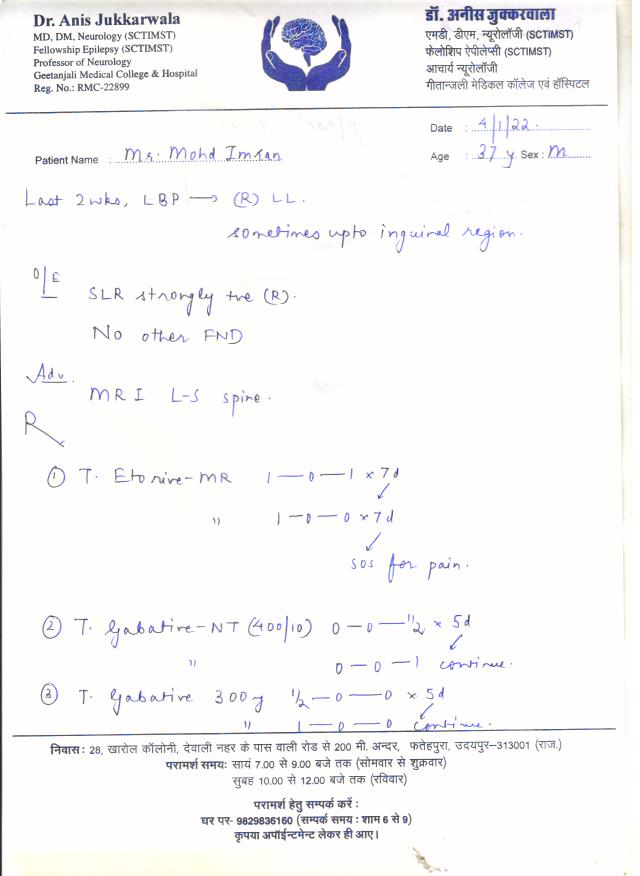 Dr. Anis Jukkarwala
MD, DM, Neurology (SCTIMST)
Fellowship Epilepsy (SCTIMST)
Professor of Neurology
Geetanjali Medical College & Hospital
Reg. No.: RMC-22899
डॉ. अनीस जुक्करवाला
एमडी, डीएम, न्यूरोलॉजी (SCTIMST)
फेलोशिप ऐपीलेप्सी (SCTIMST)
आचार्य न्यूरोलॉजी
गीतान्जली मेडिकल कॉलेज एवं हॉस्पिटल
Date : 4/1/22
Patient Name : Mr. Mohd Imran
Age : 37 y Sex : M
Last 2 wks, LBP → (R) LL.
sometimes upto inguinal region.
O/E
SLR strongly +ve (R).
No other FND
Adv.
MRI L-S spine.
R
① T. Etorive-MR 1—0—1 x 7d
" 1—0—0 x 7d
SOS for pain.
② T. Gabative-NT (400/10) 0—0—1/2 x 5d
" 0—0—1 continue.
③ T. Gabative 300 mg 1/2—0—0 x 5d
" 1—0—0 continue.
निवास: 28, खारोल कॉलोनी, देवाली नहर के पास वाली रोड से 200 मी. अन्दर, फतेहपुरा, उदयपुर–313001 (राज.)
परामर्श समय: सायं 7.00 से 9.00 बजे तक (सोमवार से शुक्रवार)
सुबह 10.00 से 12.00 बजे तक (रविवार)
परामर्श हेतु सम्पर्क करें :
घर पर- 9829836160 (सम्पर्क समय : शाम 6 से 9)
कृपया अपॉईन्टमेन्ट लेकर ही आए।